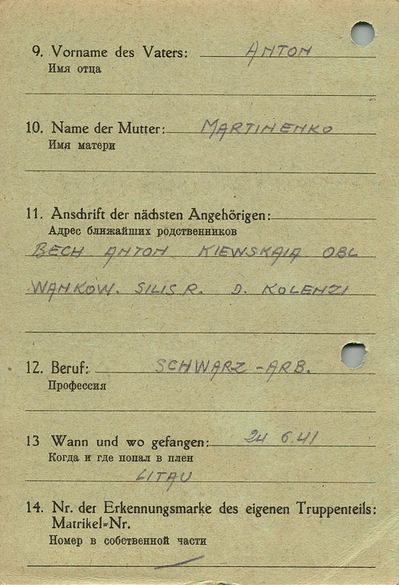 9. Vorname des Vaters: ANTON
Имя отца
10. Name der Mutter: MARTINENKO
Имя матери
11. Anschrift der nächsten Angehörigen:
Адрес ближайших родственников
BECH ANTON KIEWSKAIA OBL
WANKOW. SILIS R. D. KOLENZI
12. Beruf: SCHWARZ-ARB.
Профессия
13 Wann und wo gefangen: 24 6.41
Когда и где попал в плен
LITAU
14. Nr. der Erkennungsmarke des eigenen Truppenteils:
Matrikel-Nr.
Номер в собственной части